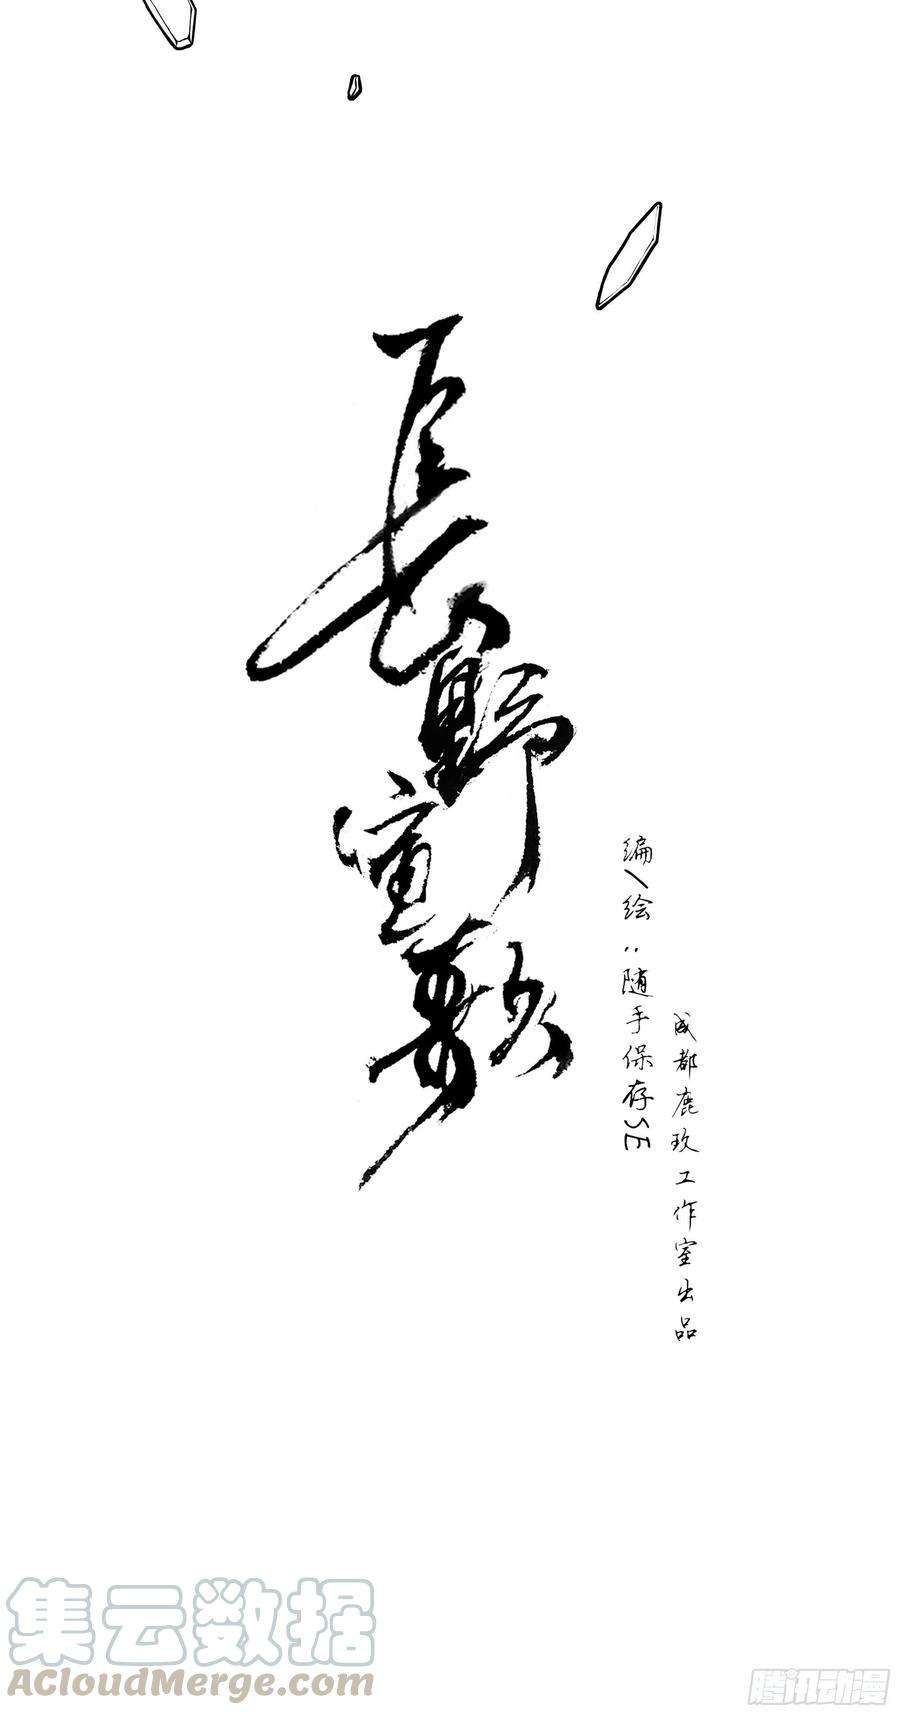 長野宣歌
编/绘:随手保存SE
成都鹿玖工作室出品
集云数据
ACloudMerge.com
腾讯动漫